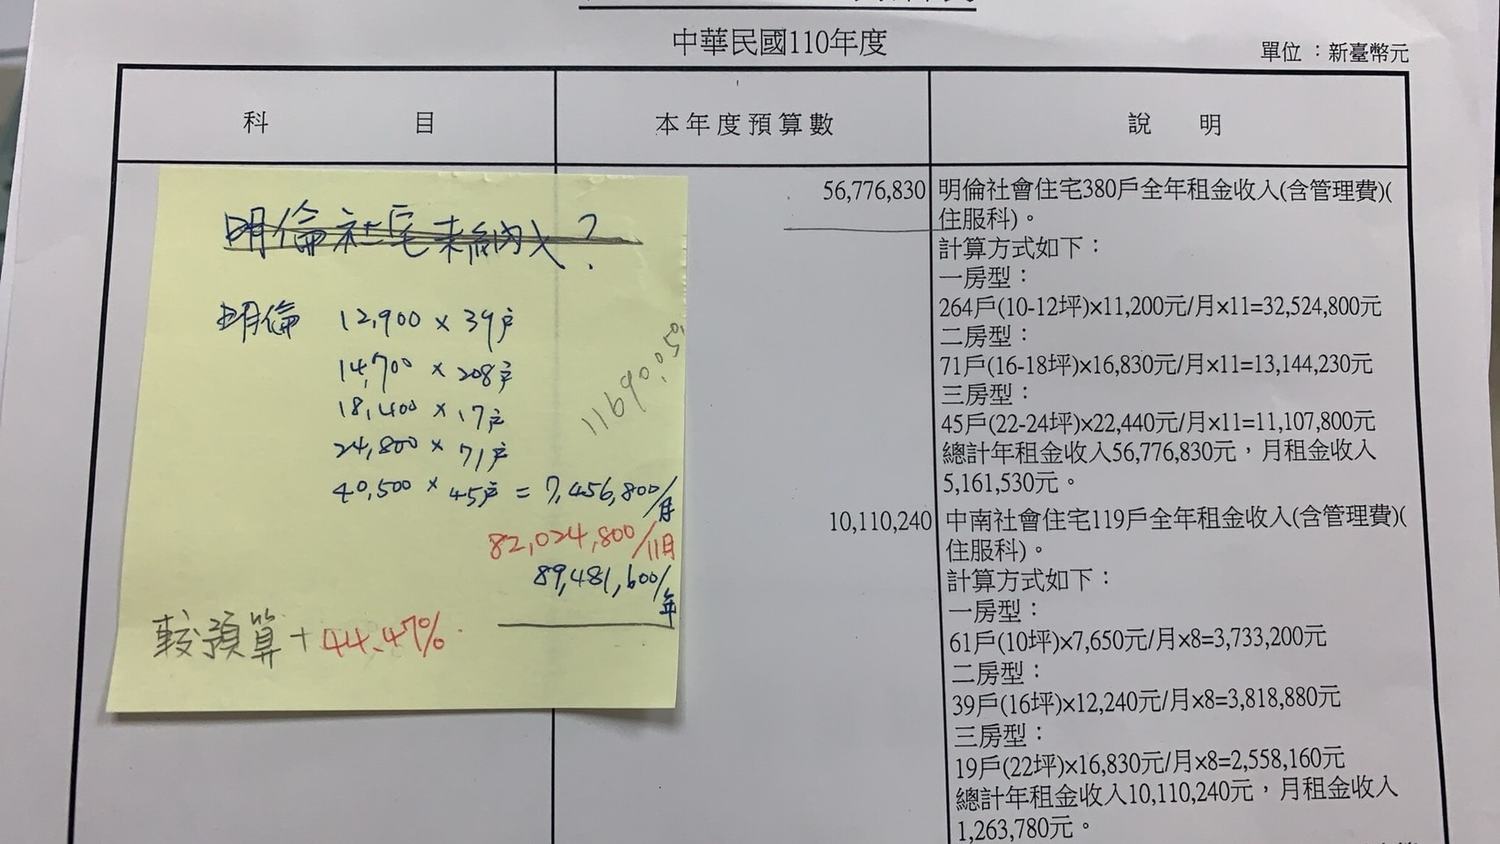 中華民國110年度
單位：新臺幣元
科 目
本年度預算數
說 明
56,776,830
明倫社會住宅380戶全年租金收入(含管理費)(
住服科)。
計算方式如下：
一房型：
264戶(10-12坪)×11,200元/月×11=32,524,800元
二房型：
71戶(16-18坪)×16,830元/月×11=13,144,230元
三房型：
45戶(22-24坪)×22,440元/月×11=11,107,800元
總計年租金收入56,776,830元，月租金收入
5,161,530元。
10,110,240
中南社會住宅119戶全年租金收入(含管理費)(
住服科)。
計算方式如下：
一房型：
61戶(10坪)×7,650元/月×8=3,733,200元
二房型：
39戶(16坪)×12,240元/月×8=3,818,880元
三房型：
19戶(22坪)×16,830元/月×8=2,558,160元
總計年租金收入10,110,240元，月租金收入
1,263,780元。
明倫社宅未納入？
明倫 12,900 × 39戶
14,700 × 208戶
18,400 × 17戶
24,800 × 71戶
40,500 × 45戶 = 7,456,800/月
82,024,800/11月
89,481,600/年
較預算 + 44.47%